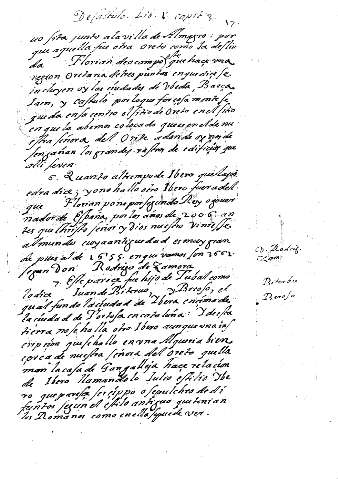 De Castulo. Lib. X capit 3.
17.
no sita junto a la villa de Almagro: por
que aquella fue otra Oreto como la deslin
da Florian de ocampo que hace una
region Oretana de tres puntas en que dice se
incluyen oy las ciudades de Ubeda, Baeca
Iaen, y Castulo por lo que forcosamente se
queda en su centro el sitio de Oreto en el sitio
en que la abemos colocado que es por el de nu
estra señora del Orite a donde oy nos de
sengañan los grandes rastros de edificios que
alli se ven.
6. Quanto al tiempo de Ibero que la pi
edra dice; yo no hallo otro Ibero fuera del
que Florian pone por segundo Rey o gover
nador de España, por los años de 2006. an
tes que Christo señor y dios nuestro viniesse
al mundo cuya antiguedad es muy gran
de pues al de 1655. en que vamos son 3662
segun Don Rodrigo de Zamora
7. Este parece fue hijo de Tubal como
lo dice Juan de Viterbo y Beroso, el
qual fundo la ciudad de Ibera encima de
la ciudad de Tortosa en cataluña: y desta
tierra no se halla otro Ibero aunque una ins
cripcion que se hallo en una Alqueria bien
cerca de nuestra señora del Oreto que lla
man la casa de Gongalleja hace relacion
de Ibero llamandolo Iulio
ro que parese ser cippo o sepulchro de di
funtos segun el estilo antiguo que tenian
los Romanos como en ello se puede ver.
Beroso